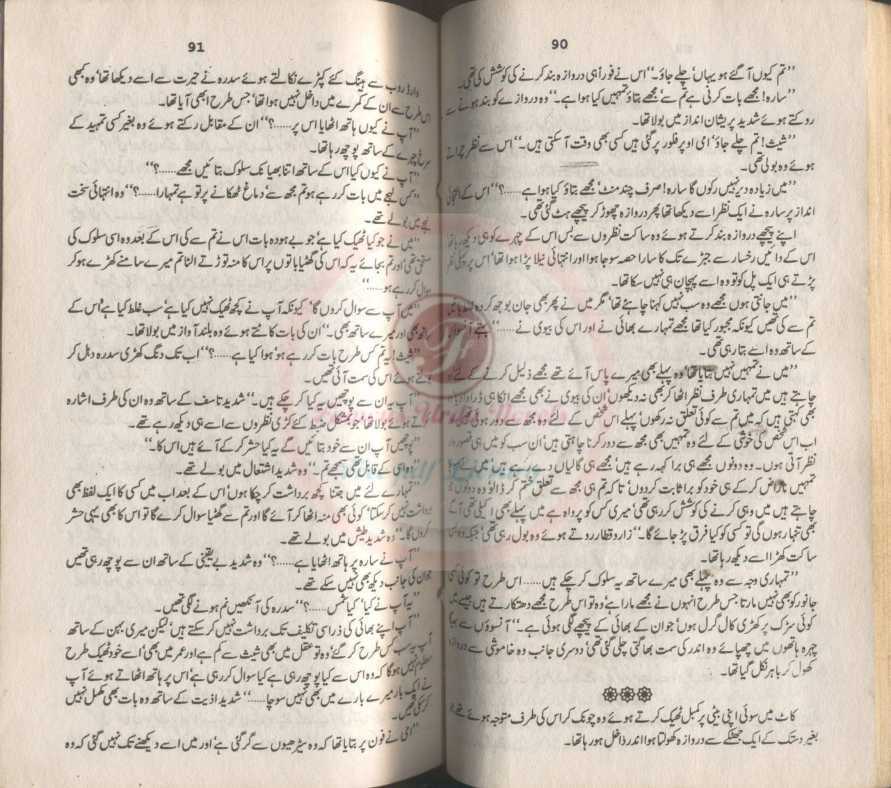 90
’’تم کیوں آ گئے ہو یہاں‘ چلے جاؤ۔‘‘ اس نے فوراً ہی دروازہ بند کرنے کی کوشش کی تھی۔
’’سارہ! مجھے بات کرنی ہے تم سے‘ مجھے بتاؤ تمہیں کیا ہوا ہے۔‘‘ وہ دروازے کو بند ہونے سے
روکتے ہوئے شدید پریشان انداز میں بولا تھا۔
’’شیث! تم چلے جاؤ‘ امی اوپر فلور پر گئی ہیں کسی بھی وقت آ سکتی ہیں۔‘‘ اس سے نظر چراتے
ہوئے وہ بولی تھی۔
’’میں زیادہ دیر نہیں رکوں گا سارہ! صرف چند منٹ‘ مجھے بتاؤ کیا ہوا ہے......؟‘‘ اس کے انتہائی
انداز پر سارہ نے ایک نظر اسے دیکھا تھا پھر دروازہ چھوڑ کر پیچھے ہٹ گئی تھی۔
اپنے پیچھے دروازہ بند کرتے ہوئے وہ ساکت نظروں سے بس اس کے چہرے کو ہی دیکھ رہا تھا
اس کے دائیں رخسار سے جبڑے تک کا سارا حصہ سوجا ہوا اور انتہائی نیلا پڑا ہوا تھا‘ اس پر پہلی نظر
پڑتے ہی ایک پل کو تو وہ اسے پہچان ہی نہیں سکا تھا۔
’’میں جانتی ہوں مجھے وہ سب نہیں کہنا چاہئے تھا‘ مگر میں نے پھر بھی جان بوجھ کر وہ
تم سے کی تھیں کیونکہ مجبور کیا تھا مجھے تمہارے بھائی نے اور اس کی بیوی نے......‘‘ بہتے آنسوؤں
کے ساتھ وہ اسے بتا رہی تھی۔
’’میں نے تمہیں نہیں بتایا تھا‘ وہ پہلے بھی میرے پاس آئے تھے مجھے ذلیل کرنے کے لئے
چاہتے ہیں میں تمہاری طرف نظر اٹھا کر بھی نہ دیکھوں‘ ان کی بیوی نے بھی مجھے
بھی یہی کہتی ہیں کہ میں تم سے کوئی تعلق نہ رکھوں‘ پہلے اس شخص کے لئے وہ مجھ سے دور ہو
اب اس شخص کی خوشی کے لئے وہ تمہیں بھی مجھ سے دور کرنا چاہتی ہیں‘ ان سب کو میں ہی
نظر آتی ہوں۔ وہ دونوں مجھے ہی برا کہہ رہے ہیں‘ مجھے ہی گالیاں دے رہے ہیں‘ میں نے
تمہیں ناراض کر کے ہی خود کو برا ثابت کر دوں‘ تا کہ تم ہی مجھ سے تعلق ختم کر ڈالو وہ دونوں
چاہتے ہیں میں وہی کرنے کی کوشش کر رہی تھی‘ میری کس کو پرواہ ہے میں پہلے بھی اکیلی تھی آگے
بھی تنہا رہوں گی تو کسی کو کیا فرق پڑ جائے گا۔‘‘ زار و قطار روتے ہوئے وہ بول رہی تھی‘ جبکہ وہ
ساکت کھڑا اسے دیکھ رہا تھا۔
’’تمہاری وجہ سے وہ پہلے بھی میرے ساتھ یہ سلوک کر چکے ہیں...... اس طرح تو کوئی کسی
جانور کو بھی نہیں مارتا جس طرح انہوں نے مجھے مارا ہے‘ وہ تو اس طرح مجھے دھتکارتے ہیں جیسے میں
کوئی سڑک پر کھڑی کال گرل ہوں‘ جو ان کے بھائی کے پیچھے لگی ہوئی ہے۔‘‘ آنسوؤں سے بھیگا
چہرہ ہاتھوں میں چھپائے وہ اندر کی سمت بھاگتی چلی گئی تھی‘ دوسری جانب وہ خاموشی سے دروازہ
کھول کر باہر نکل گیا تھا۔
کاٹ میں سوئی اپنی بیٹی پر کمبل ٹھیک کرتے ہوئے وہ چونک کر اس کی طرف متوجہ ہوئے تھے
بغیر دستک کے ایک جھٹکے سے دروازہ کھولتا ہوا اندر داخل ہو رہا تھا۔
91
وارڈ روب سے ہینگ کئے کپڑے نکالتے ہوئے سدرہ نے حیرت سے اسے دیکھا تھا‘ وہ کبھی
اس طرح سے ان کے کمرے میں داخل نہیں ہوا تھا‘ جس طرح ابھی آیا تھا۔
’’آپ نے کیوں ہاتھ اٹھایا اس پر......؟‘‘ ان کے مقابل رکتے ہوئے وہ بغیر کسی تمہید کے
سرخ چہرے کے ساتھ پوچھ رہا تھا۔
’’آپ نے کیوں کیا اس کے ساتھ اتنا بھیانک سلوک بتائیں مجھے......؟‘‘
’’کس لہجے میں بات کر رہے ہو تم مجھ سے‘ دماغ ٹھکانے پر تو ہے تمہارا......؟‘‘ وہ انتہائی سخت
لہجے میں بولے تھے۔
’’میں نے جو کیا ٹھیک کیا ہے‘ جو بے ہودہ بات اس نے تم سے کی اس کے بعد وہ اسی سلوک کی
مستحق تھی‘ اور تم بجائے یہ کہ اس کی گھٹیا باتوں پر اس کا منہ توڑتے الٹا تم میرے سامنے کھڑے ہو کر
سوال کر رہے ہو......‘‘
’’میں آپ سے سوال کروں گا‘ کیونکہ آپ نے کچھ ٹھیک نہیں کیا ہے‘ سب غلط کیا ہے‘ اس کے
ساتھ بھی اور میرے ساتھ بھی۔‘‘ ان کی بات کاٹتے ہوئے وہ بلند آواز میں بولا تھا۔
’’شیث! یہ تم کس طرح بات کر رہے ہو‘ ہوا کیا ہے......؟‘‘ اب تک دنگ کھڑی سدرہ دہل کر
ہوئے اس کی سمت آئی تھیں۔
’’آپ یہ ان سے پوچھیں یہ کیا کر چکے ہیں۔‘‘ شدید تاسف کے ساتھ وہ ان کی طرف اشارہ
کرتے ہوئے بولا تھا‘ جو بمشکل ضبط کئے کڑی نظروں سے اسے ہی دیکھ رہے تھے۔
’’پوچھیں آپ ان سے خود بتائیں گے یہ کیا حشر کر کے آئے ہیں اس کا۔‘‘
’’وہ اسی کے قابل تھی سمجھے تم۔‘‘ وہ شدید اشتعال میں بولے تھے۔
’’تمہارے لئے میں جتنا کچھ برداشت کر چکا ہوں‘ اس کے بعد اب میں کسی کا ایک لفظ بھی
برداشت نہیں کر سکتا‘ کوئی بھی منہ اٹھا کر آئے گا اور تم سے گھٹیا سوال کرے گا تو اس کا بھی یہی حشر
کروں گا۔‘‘ وہ شدید طیش میں بولے تھے۔
’’آپ نے سارہ پر ہاتھ اٹھایا ہے......؟‘‘ وہ شدید بے یقینی کے ساتھ ان سے پوچھ رہی تھیں
جو ان کی جانب دیکھ بھی نہیں سکے تھے۔
’’یہ آپ نے کیا‘ کیا شمس......؟‘‘ سدرہ کی آنکھیں نم ہونے لگی تھیں۔
’’آپ اپنے بھائی کی ذرا سی تکلیف تک برداشت نہیں کر سکتے ہیں‘ لیکن میری بہن کے ساتھ
آپ یہ سب کس طرح کر گئے‘ وہ تو عقل میں بھی شیث سے کم ہے اور عمر میں بھی‘ اسے خود ٹھیک طرح
معلوم نہیں ہو گا کہ وہ اس سے کیا پوچھ رہی ہے کیا سوال کر رہی ہے‘ اس پر ہاتھ اٹھاتے ہوئے آپ
نے ایک بار میرے بارے میں بھی نہیں سوچا......‘‘ شدید اذیت کے ساتھ وہ بات بھی مکمل نہیں
کر سکی تھیں۔
’’امی نے فون پر بتایا تھا کہ وہ سیڑھیوں سے گر گئی ہے‘ اور میں اسے دیکھنے تک نہیں گئی کہ وہ